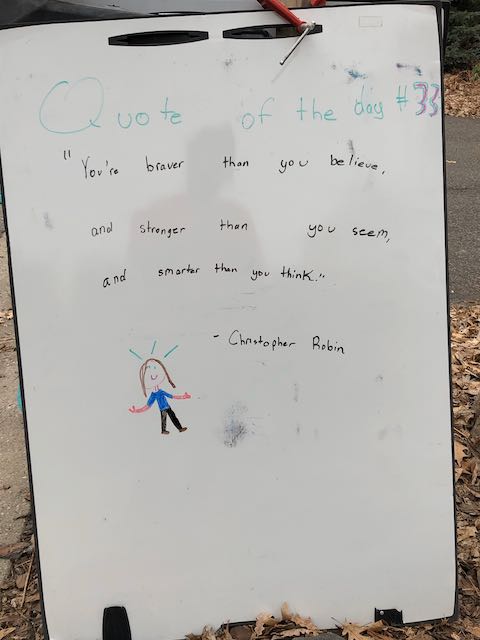 Quote of the day #33
"You're braver than you believe,
and stronger than you seem,
and smarter than you think."
- Christopher Robin